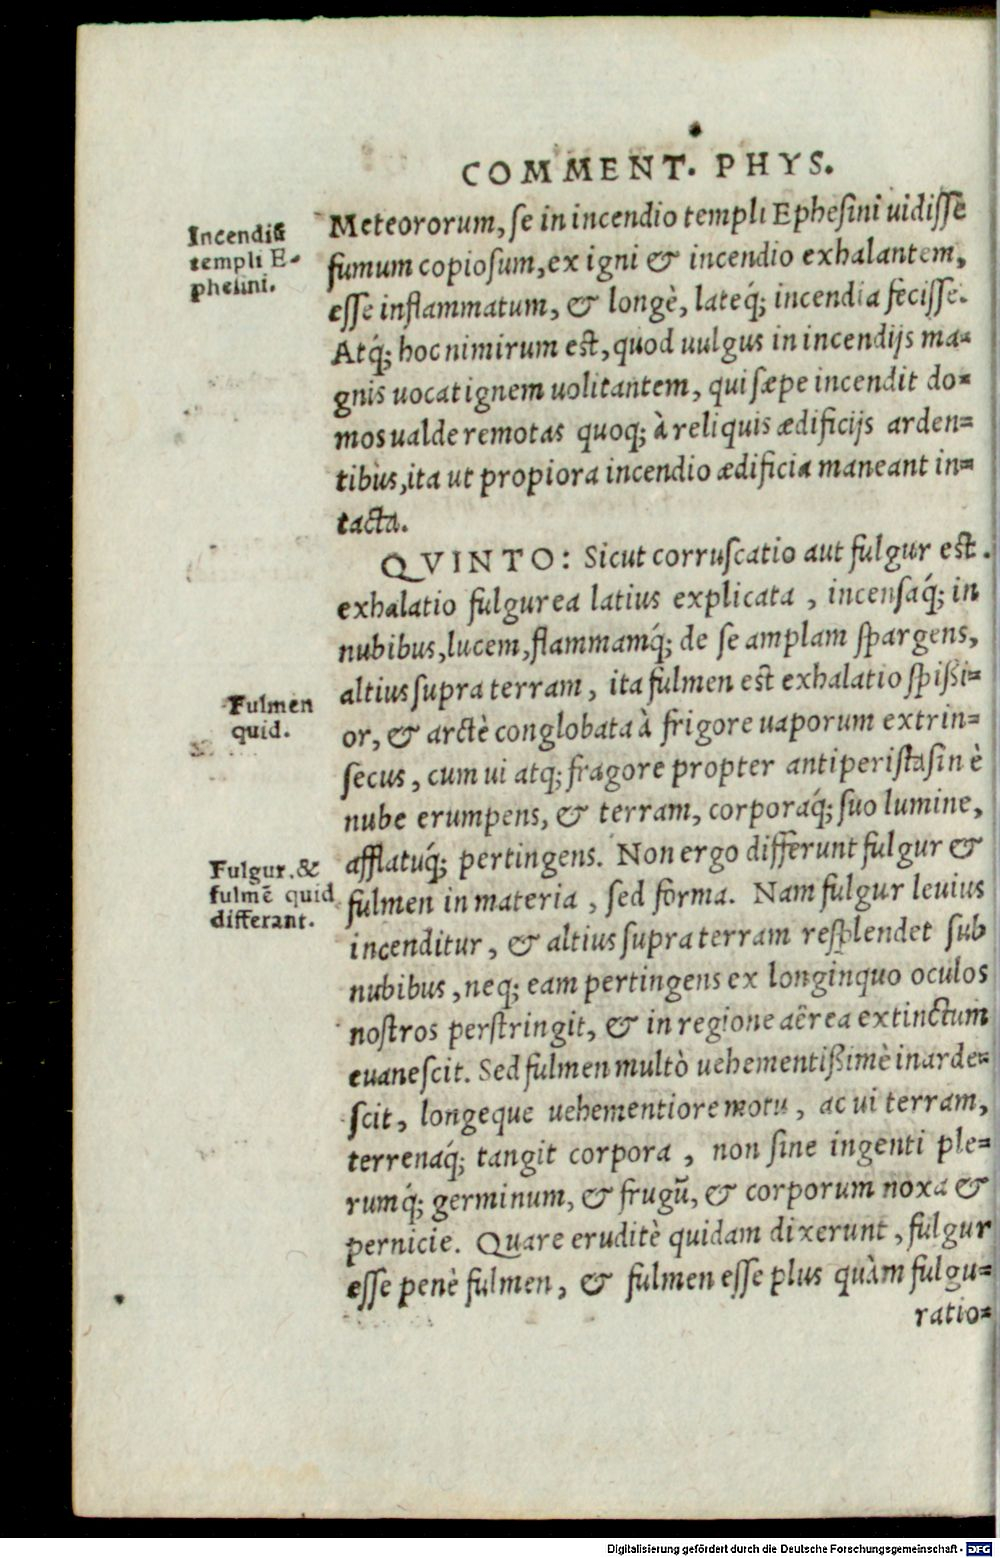 COMMENT. PHYS.
Incendiũ
templi E-
phesini.
Meteororum, se in incendio templi Ephesini uidisse
fumum copiosum, ex igni & incendio exhalantem,
esse inflammatum, & longè, lateq́; incendia fecisse.
Atq́; hoc nimirum est, quod uulgus in incendijs ma=
gnis uocat ignem uolitantem, qui sæpe incendit do=
mos ualde remotas quoq; à reliquis ædificijs arden=
tibus, ita ut propiora incendio ædificia maneant in=
tacta.
QVINTO: Sicut corruscatio aut fulgur est
exhalatio fulgurea latius explicata, incensaq́; in
nubibus, lucem, flammamq́; de se amplam spargens,
Fulmen
quid.
altius supra terram, ita fulmen est exhalatio spißi=
or, & arctè conglobata à frigore uaporum extrin=
secus, cum ui atq; fragore propter antiperistasin è
nube erumpens, & terram, corporaq́; suo lumine,
Fulgur, &
fulmẽ quid
differant.
afflatuq́; pertingens. Non ergo differunt fulgur &
fulmen in materia, sed forma. Nam fulgur leuius
incenditur, & altius supra terram resplendet sub
nubibus, neq; eam pertingens ex longinquo oculos
nostros perstringit, & in regione aërea extinctum
euanescit. Sed fulmen multò uehementißimè inarde=
scit, longeque uehementiore motu, ac ui terram,
terrenaq́; tangit corpora, non sine ingenti ple=
rumq́; germinum, & frugũ, & corporum noxa &
pernicie. Quare eruditè quidam dixerunt, fulgur
esse penè fulmen, & fulmen esse plus quàm fulgu=
ratio=
Digitalisierung gefördert durch die Deutsche Forschungsgemeinschaft - DFG